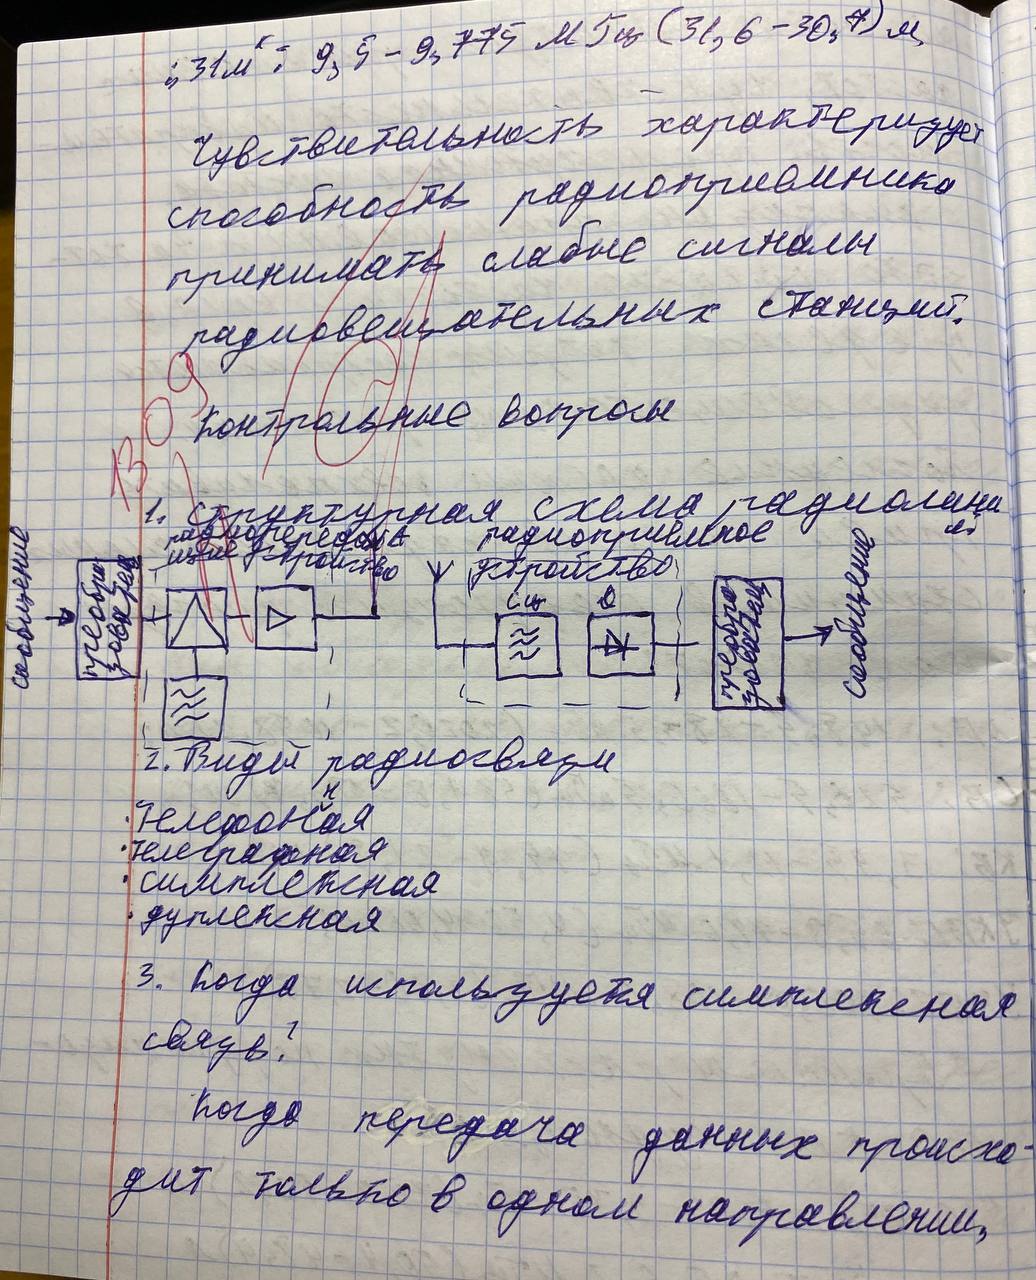 „31м“: 9,5 – 9,775 МГц (31,6 – 30,7) м,
Чувствительность характеризует
способность радиоприемника
принимать слабые сигналы
радиовещательных станций.
Контрольные вопросы
13 09
1. Структурная схема радиолини
ей
радиопередаю
щие устройство
радиоприемное
устройство
сообщение
преобра
зователь
СЦ
Д
преобра
зователь
сообщение
2. Виды радиосвязи
· телефонная
· телеграфная
· симплексная
· дуплексная
3. Когда используется симплексная
связь?
Когда передача данных происхо-
дит только в одном направлении,